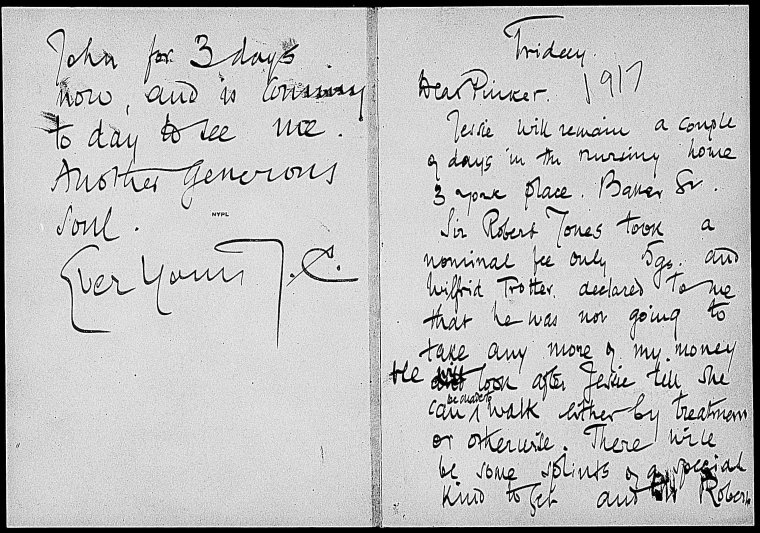 Friday.
1917
Dear Pinker.
Jessie will remain a couple
of days in the nursing home
3 York place. Baker St.
Sir Robert Jones took a
nominal fee only 5gs. and
Wilfrid Trotter declared to me
that he was not going to
take any more of my money
He will look after Jessie till she
can be made to walk either by treatment
or otherwise. There will
be some splints of a special
kind to get and Sir Robert
John for 3 days
now, and is coming
to day to see me.
Another generous
soul.
NYPL
Ever Yours J.C.